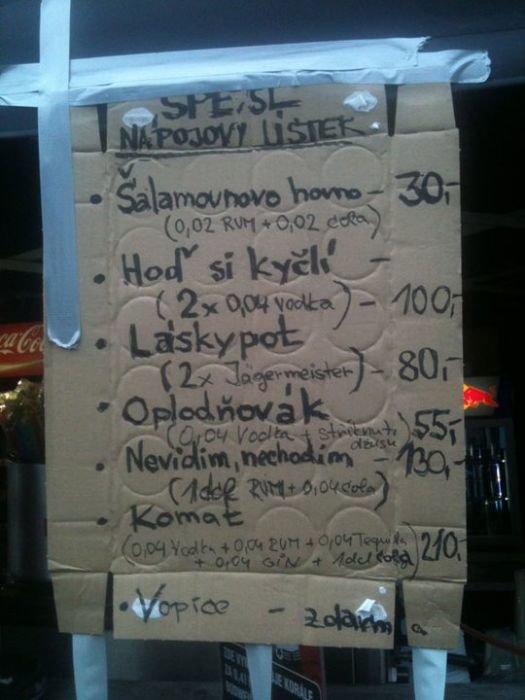 SPE,SL
NÁPOJOVÝ LÍSTEK
• Šalamounovo hovno - 30,-
(0,02 RUM + 0,02 cola)
• Hoď si kyčlí -
(2x 0,04 vodka) - 100,-
• Láskypot
(2x Jägermeister) - 80,-
• Oplodňovák
(0,04 Vodka + stříknutí džusu) 55,-
• Nevidim, nechodim - 130,-
(1dcl RUM + 0,04 cola)
• Komat
(0,04 Vodka + 0,04 RUM + 0,04 Tequila
+ 0,04 GIN + 1dcl cola) 210,-
• Vopice - zdarma
Coca-Co